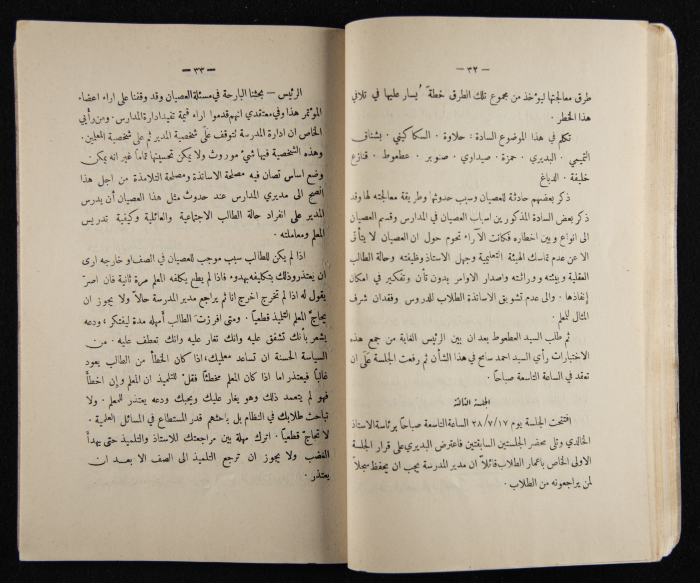 — ٣٢ —
طرق معالجتها ليؤخذ من مجموع تلك الطرق خطة يُسار عليها في تلافي
هذا الخطر .
تكلم في هذا الموضوع السادة : حلاوة . السكاكيني . بشناق
التميمي . البديري . حمزة . صيداوي . صنوبر . عطعوط . قنازع
خليفة . الدباغ
ذكر بعضهم حادثة للعصيان وسبب حدوثها وطريقة معالجته لها وقد
ذكر بعض السادة المذكورين اسباب العصيان في المدارس وقسم العصيان
الى انواع وبين اخطاره فكانت الآراء تحوم حول ان العصيان لا يتأتى
الا عن عدم تماسك الهيئة التعليمية وجهل الاستاذ وظيفته وحالة الطالب
العقلية وبيئته ووراثته واصدار الاوامر بدون تأن وتفكير في امكان
إنفاذها . والى عدم تشويق الاساتذة الطلاب للدروس وفقدان شرف
المثال للمعلم .
ثم طلب السيد العطعوط بعد ان بين الرئيس الغاية من جمع هذه
الاختبارات رأي السيد احمد سامح في هذا الشأن ثم رفعت الجلسة على ان
تعقد في الساعة التاسعة صباحاً .
الجلسة الثالثة
افتتحت الجلسة يوم ٢٨/٧/١٧ الساعة التاسعة صباحاً برئاسة الاستاذ
الخالدي وتلى محضر الجلستين السابقتين فاعترض البديري على قرار الجلسة
الاولى الخاص باعمار الطلاب قائلاً ان مدير المدرسة يجب ان يحفظ سجلاً
لمن يراجعونه من الطلاب .
— ٣٣ —
الرئيس — بحثنا البارحة في مسئلة العصيان وقد وقفنا على اراء اعضاء
المؤتمر هذا وفي معتقدي انهم قدموا اراء قيمة تفيد ادارة المدارس . ومن رأيي
الخاص ان ادارة المدرسة تتوقف على شخصية المدير ثم على شخصية المعلمين .
وهذه الشخصية فيها شيء موروث ولا يمكن تحسينها تماماً غير انه يمكن
وضع اساس تصان فيه مصلحة الاساتذة ومصلحة التلامذة من اجل هذا
انصح الى مديري المدارس عند حدوث مثل هذا العصيان أن يدرس
المدير على انفراد حالة الطالب الاجتماعية والعائلية وكيفية تدريس
المعلم ومعاملته .
اذا لم يكن للطالب سبب موجب للعصيان في الصف او خارجه ارى
ان يعتذر وذلك بتكليفه بهدوء فاذا لم يطع يكلفه المعلم مرة ثانية فان اصر
يقول له اذا لم تخرج اخرج انا ثم يراجع مدير المدرسة حالاً ولا يجوز ان
يحاج المعلم التلميذ قطعياً . ومتى افرزت الطالب أمهله مدة ليفتكر ، ودعه
يشعر بأنك تشفق عليه وانك تغار عليه وانك تعطف عليه . من
السياسة الحسنة ان تساعد معلميك ، اذا كان الخطأ من الطالب يعود
غالباً فيعتذر اما اذا كان المعلم مخطئاً فقل للتلميذ ان المعلم وإن اخطأ
فهو لم يتعمد ذلك وهو يغار عليك ويحبك ودعه يعتذر للمعلم . ولا
تباحث طلابك في النظام بل باحثهم قدر المستطاع في المسائل العلمية .
لا تحاج قطعياً . اترك مهلة بين مراجعتك للاستاذ والتلميذ حتى يهدأ
الغضب ولا يجوز ان ترجع التلميذ الى الصف الا بعد ان
يعتذر .